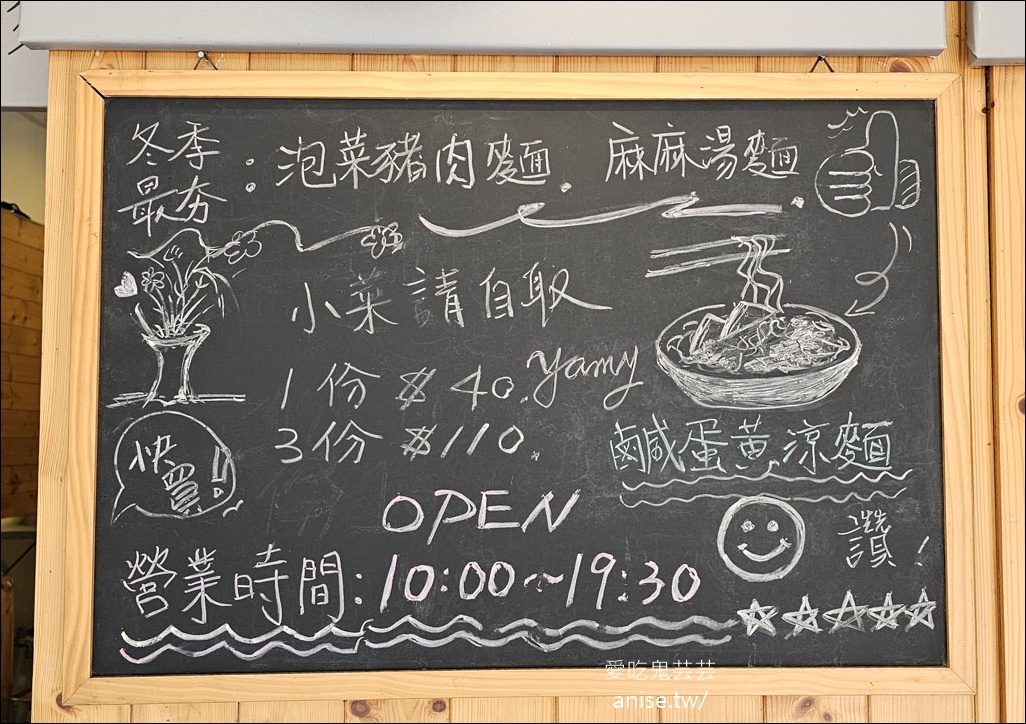 冬季
最夯：泡菜豬肉麵. 麻麻湯麵.
小菜請自取
1份 $40.
3份 $110.
Yamy
鹹蛋黃涼麵
快買!!
OPEN
讚!
營業時間:10:00~19:30
愛吃鬼芸芸
anise.tw/